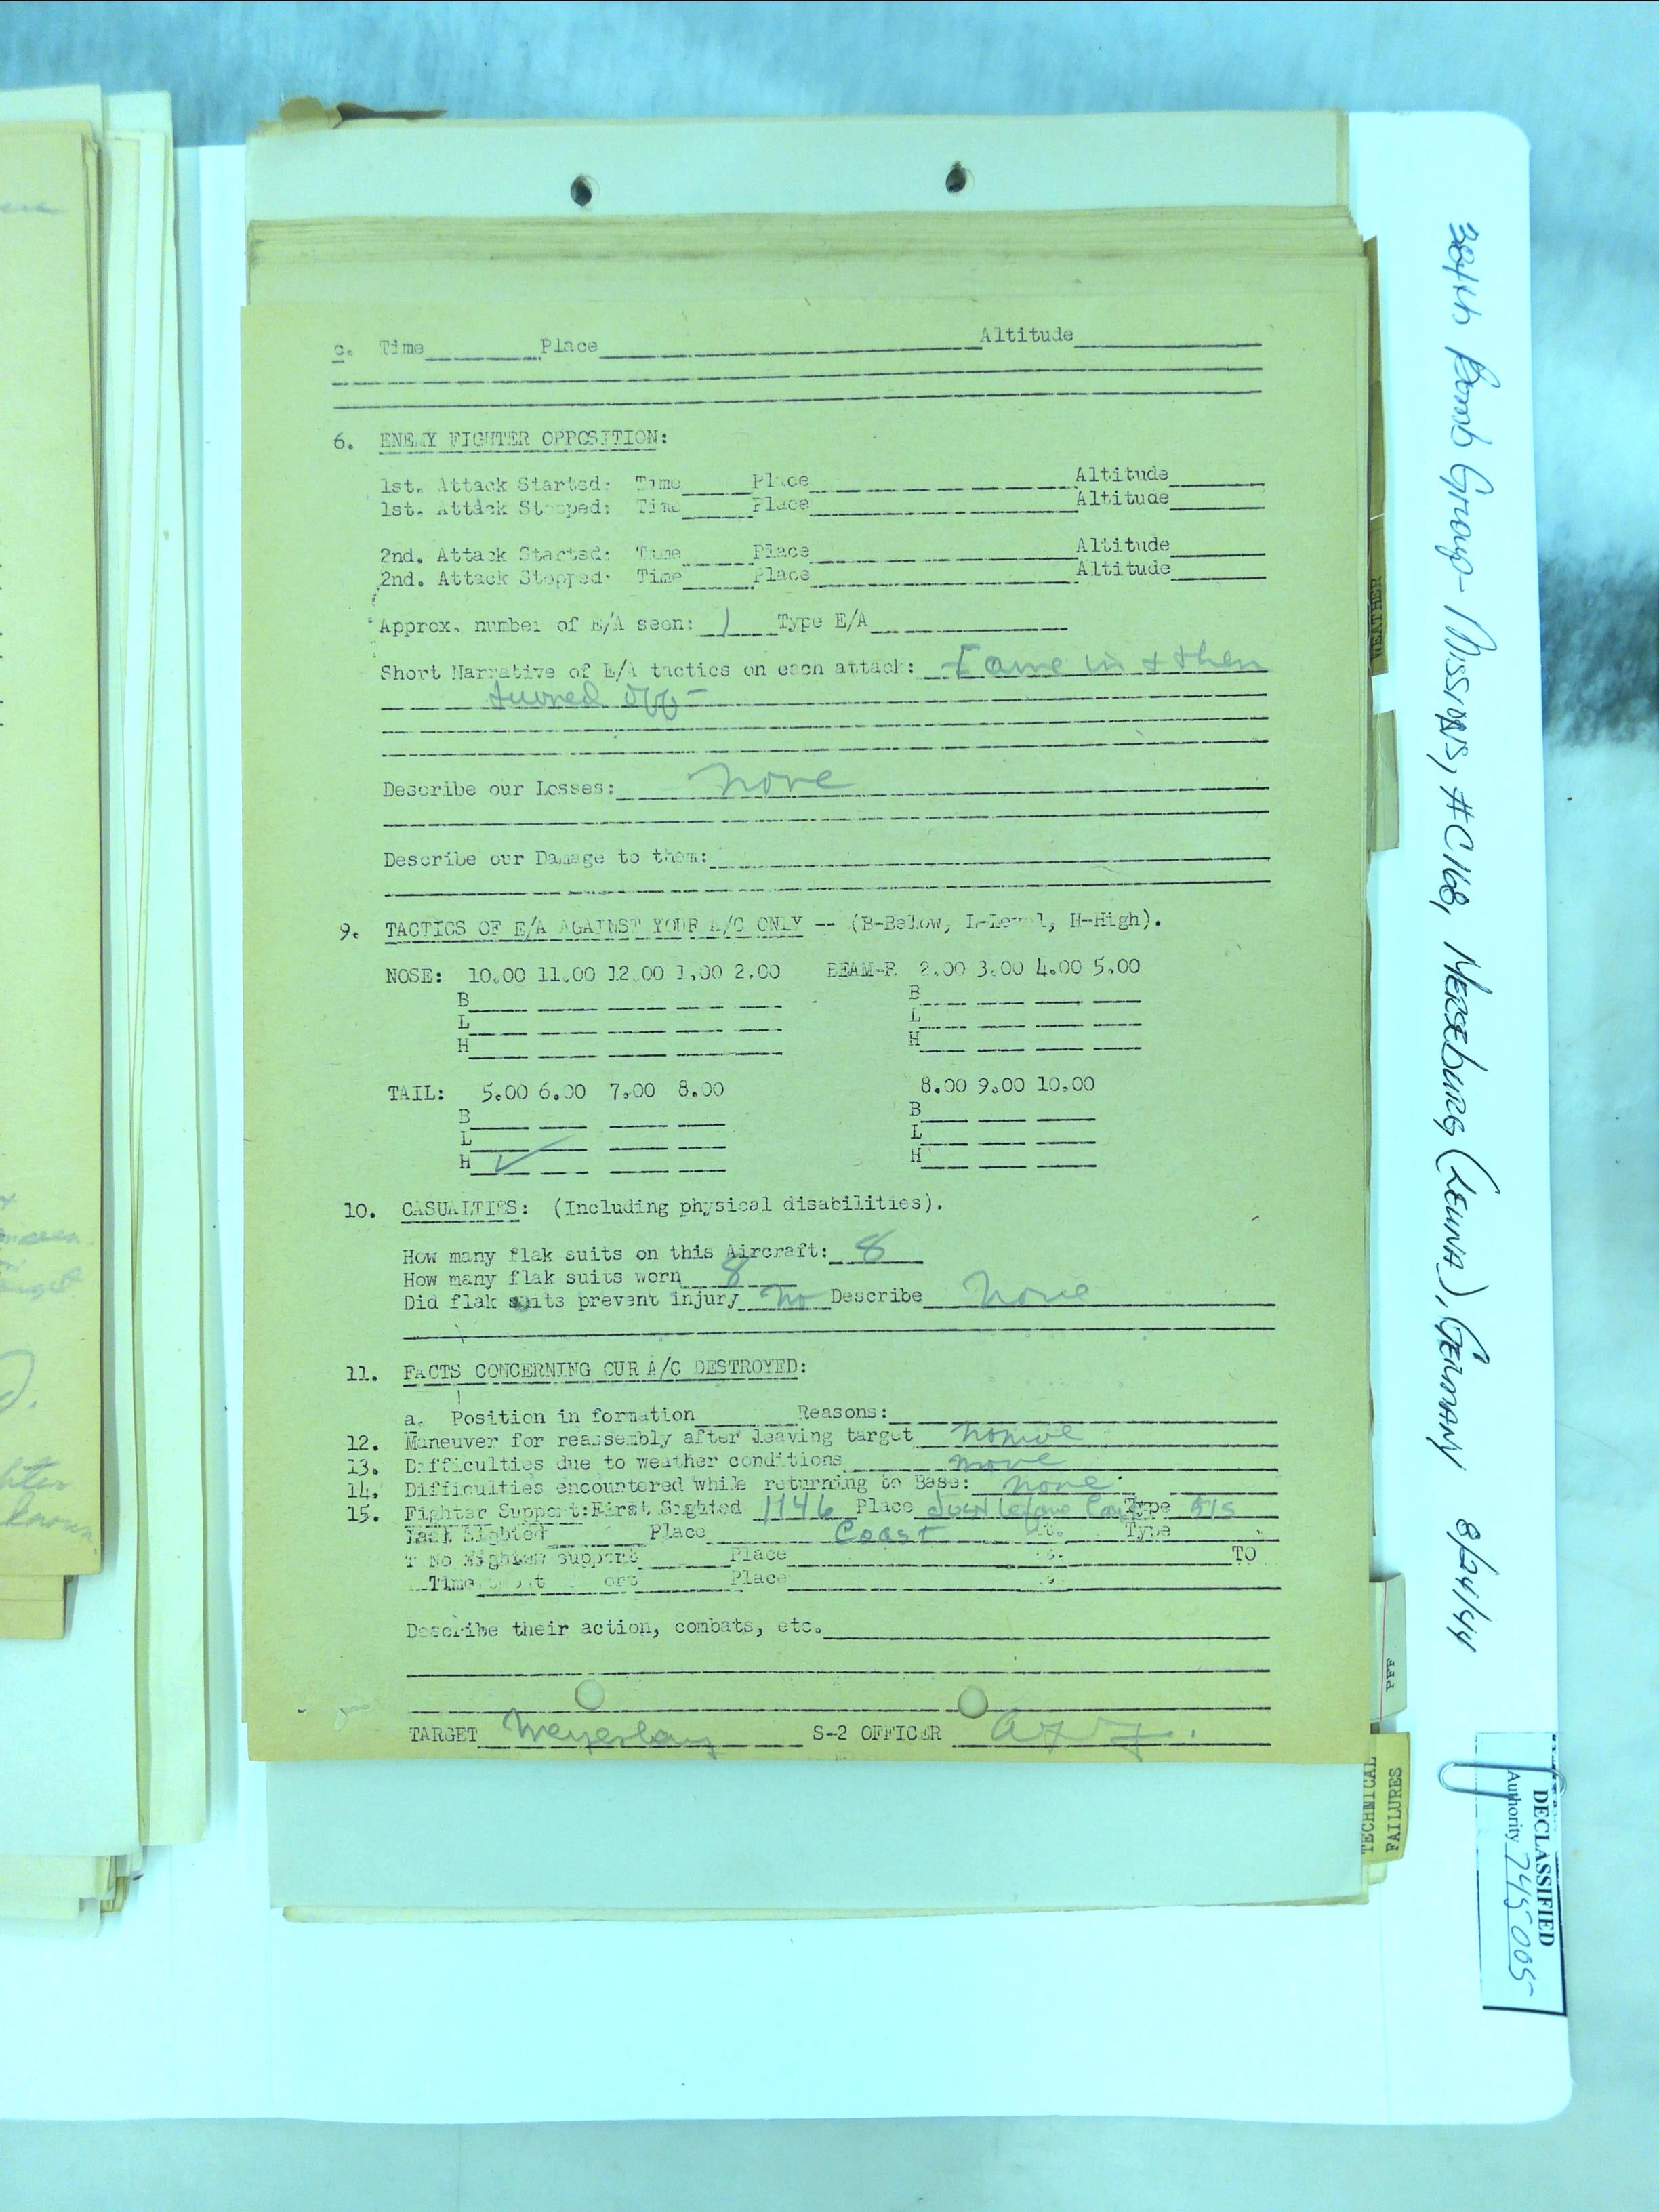 c. Time Place Altitude
6. ENEMY FIGHTER OPPOSITION:
1st. Attack Started: Time Place Altitude
1st. Attack Stopped: Time Place Altitude
2nd. Attack Started: Time Place Altitude
2nd. Attack Stopped: Time Place Altitude
Approx. number of E/A seen: 1 Type E/A
Short Narrative of E/A tactics on each attack: Came in + then
turned off -
Describe our Losses: none
Describe our Damage to them:
9. TACTICS OF E/A AGAINST YOUR A/C ONLY -- (B-Below, L-Level, H-High).
NOSE: 10.00 11.00 12.00 1.00 2.00 BEAM-R 2.00 3.00 4.00 5.00
B B
L L
H H
TAIL: 5.00 6.00 7.00 8.00 8.00 9.00 10.00
B B
L L
H ✓ H
10. CASUALTIES: (Including physical disabilities).
How many flak suits on this Aircraft: 8
How many flak suits worn 8
Did flak suits prevent injury no Describe None
11. FACTS CONCERNING OUR A/C DESTROYED:
a. Position in formation Reasons:
12. Maneuver for reassembly after leaving target
13. Difficulties due to weather conditions none
14. Difficulties encountered while returning to Base: none
15. Fighter Support: First Sighted 1146 Place Just before Type 51s
Last Sighted Place Coast At. Type
No Fighter support Place TO
Time Place
Describe their action, combats, etc.
TARGET S-2 OFFICER
WEATHER
PFF
TECHNICAL
FAILURES
384th Bomb Group - Missions, #C168, MERSEBURG (LEUNA), GERMANY 8/24/44
DECLASSIFIED
Authority 745005